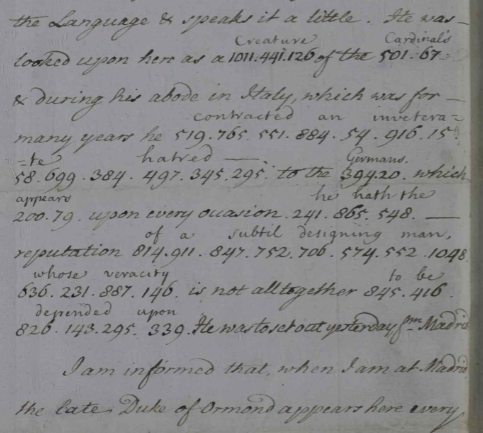 the Language & speaks it a little. He was —
Creature Cardinals
looked upon here as a 1011.441.126 of the 501.67
& during his abode in Italy, which was for —
contracted an invetera-
many years he 519.765.551.884.54.916.15
=te hatred —. Germans.
58.699.384.497.345.295. to the 39420. which
appears he hath the
200.79. upon every occasion. 241.865.548. —
of a subtil designing man,
reputation 814.911.847.752.706.574.552.1048
whose veracity to be
636.231.887.146. is not alltogether 845.416.
depended upon
826.143.295.339. He was to set out yesterday fm Madrid
I am informed that, when I am at Madrid
the late Duke of Ormond appears here every